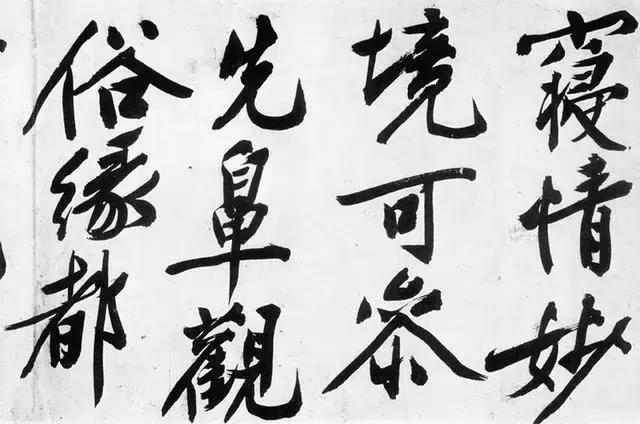 寢情妙
境可參
先鼻觀
俗緣都